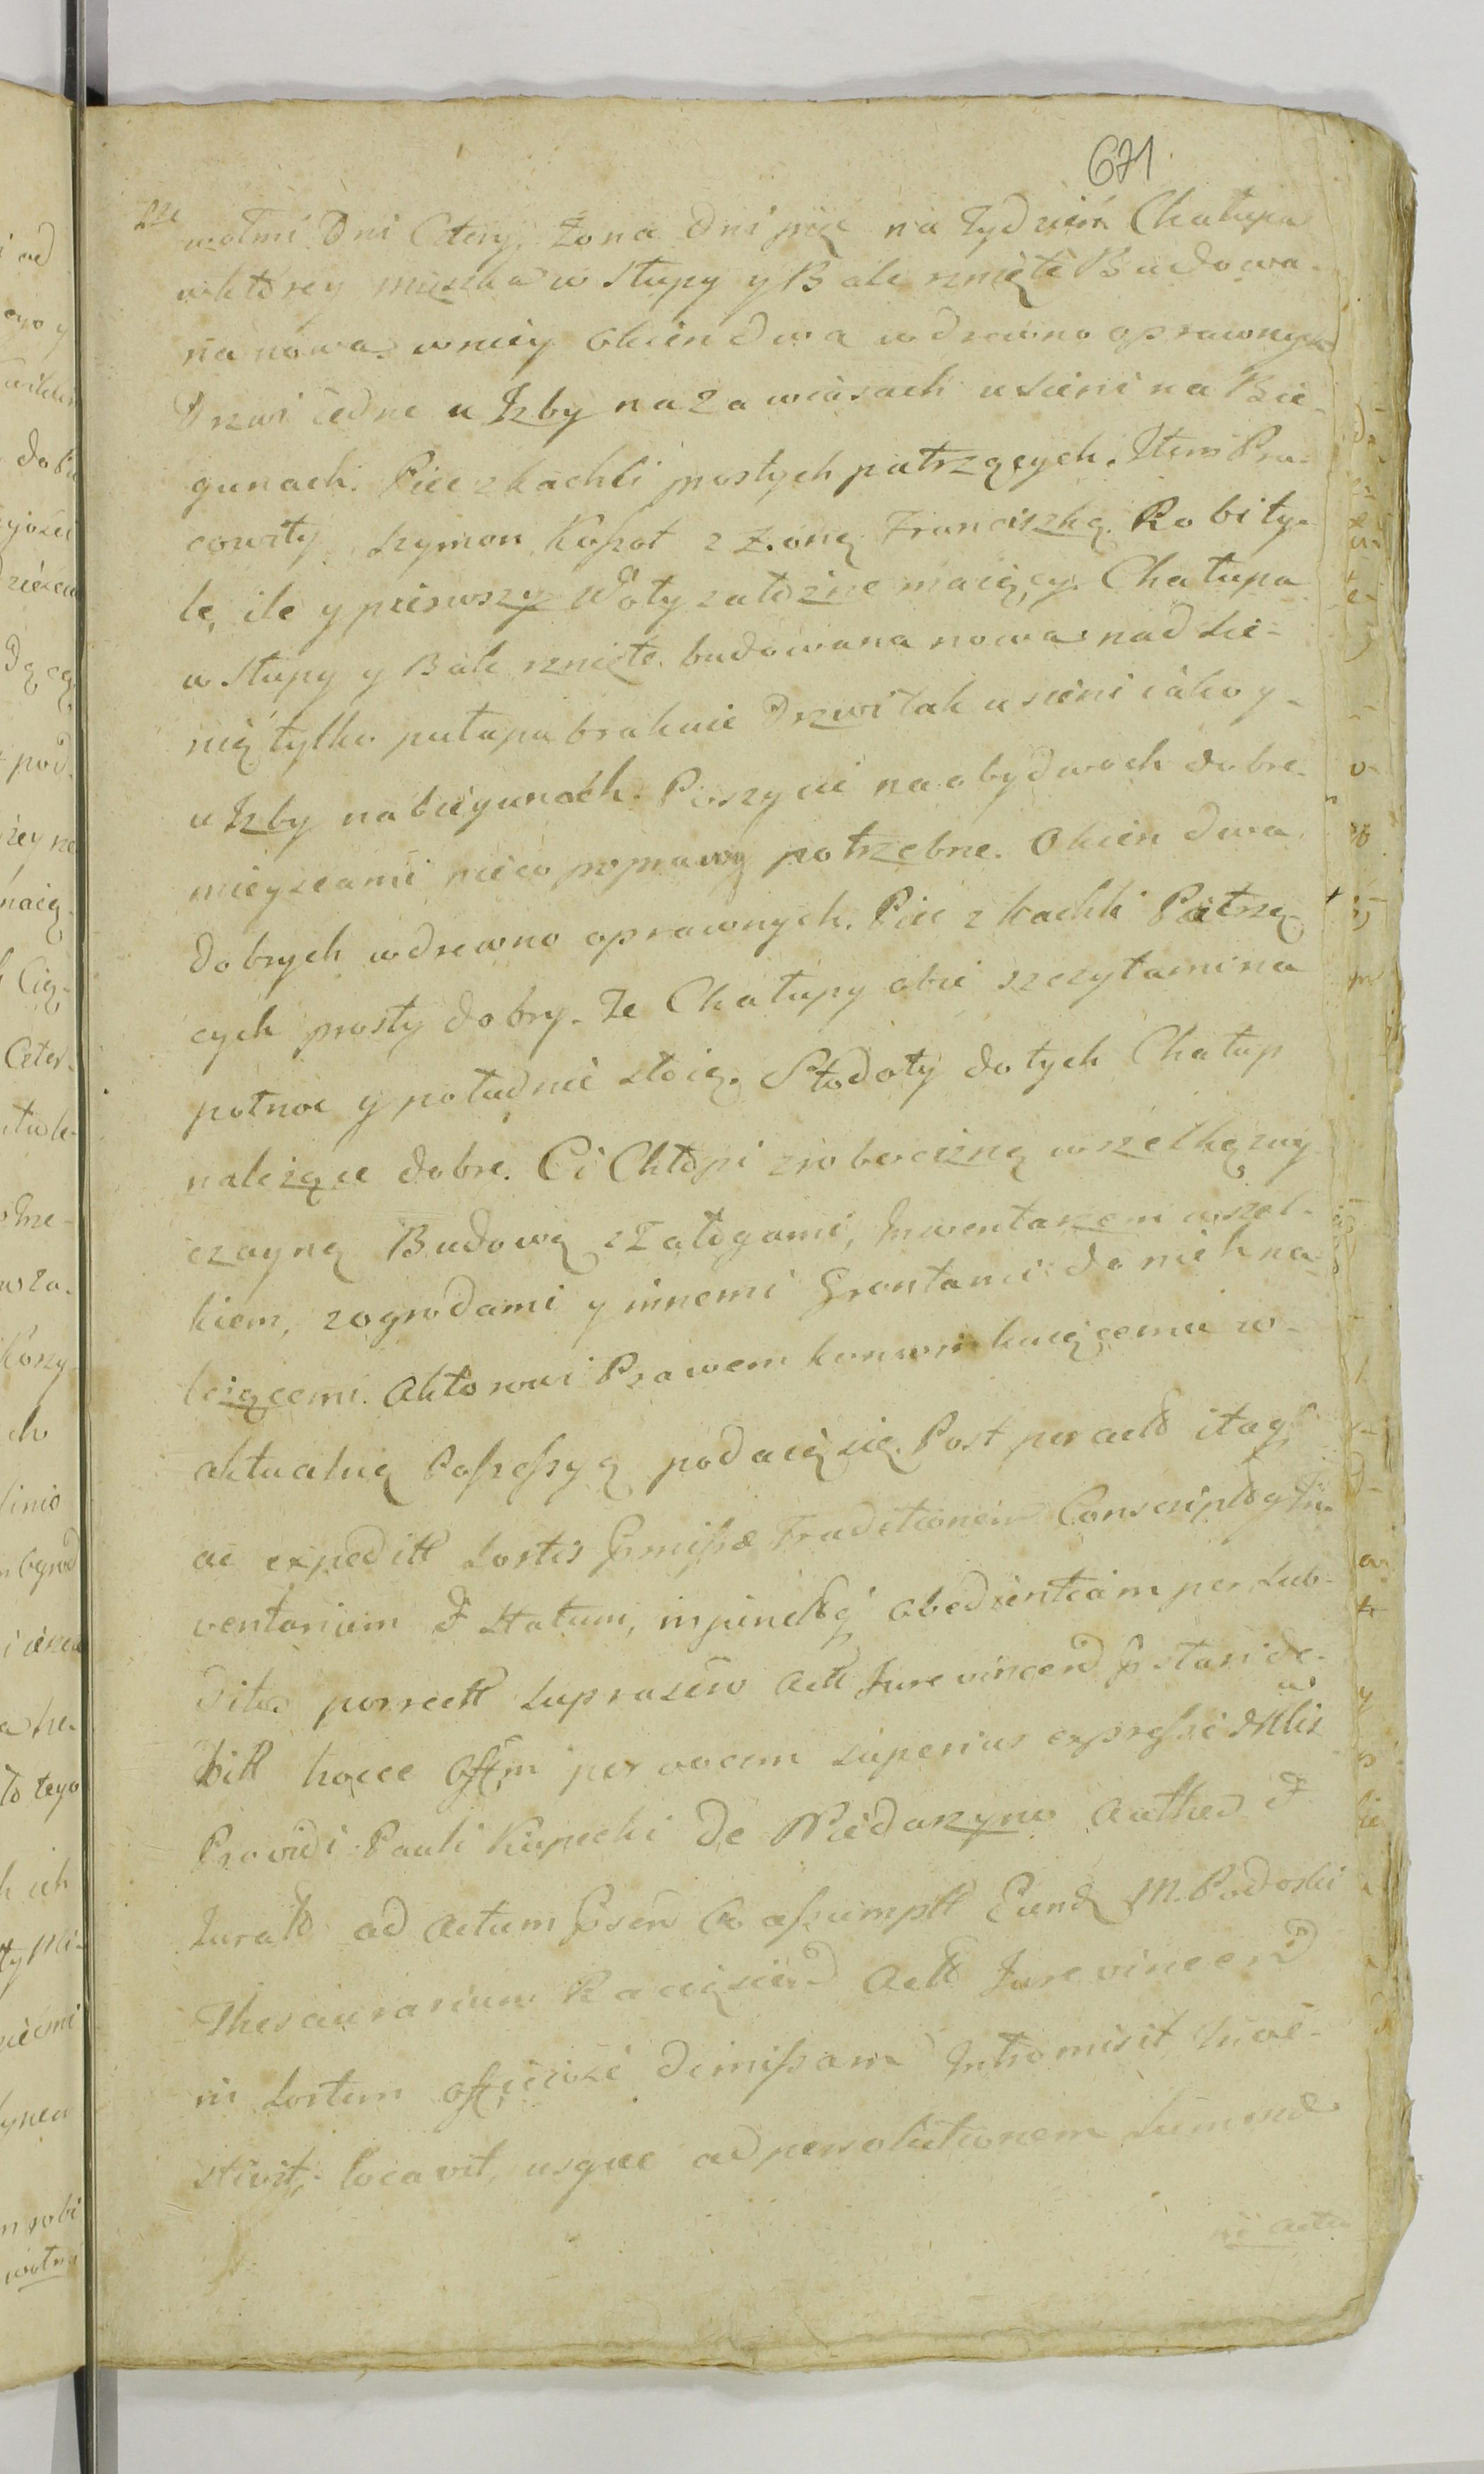 671
wołmi Dni Cztery, Żona Dni pięć na Tydzień Chałupa
w ktorey mieszka w Słupy y Bale rznięte Budowa-
na nowa. w niey Okien dwa w drewno oprawnych
Drzwi iedne u Izby na Zawiasach u Sieni na Bie-
gunach. Piec z kachli prostych patrzących. Item Pra-
cowity Szymon Koszot z Żoną Franciszką. Robi ty-
le, ile y pierwszy Woły załozne maiący. Chałupa
w Słupy y Bale rznięte budowana nowa. nad Sie-
nią tylko pułapu brakuie Drzwi tak u sieni iako y
u Izby na biegunach. Poszycie na obydwoch dobre
mieyscami nieco poprawy potrzebne. Okien dwa
dobrych w drewno oprawnych. Piec z kachli Patrzą
cych prosty dobry. Te Chałupy obie szczytami na
połnoc y południe stoią. Stodoły do tych Chałup
należące dobre. Ci Chłopi z robocizną wszelką zwy
czayną Budową z Załogami, Inwentarzem wszel-
kiem, z ogrodami y innemi Grontami do nich na-
leżącemi. Aktorowi Prawem konwinkuiącemu w
aktualną Possessyą podaią się. Post peractõ itaq
ac expedittt Sortis pmissæ Traditionem Conscriptõq In-
ventarium & Statum, injunctõq obedientiam per Sub-
ditos porrectt suprascrō Actt Jure vincend pstari de-
bitt hocce Offm per vocem superius expressi Mlis
Providi Pauli Kupecki de Niedarzyno Authed &
Jurato ad Actum psen Co assumptt Eund M. Podoski
Thesaurarium Raciąsien Actõ Jure vincend
in Sortem officiose dimissam Intromisit Inve-
stivit, locavit, usque ad persolutionem Summæ
in Actu